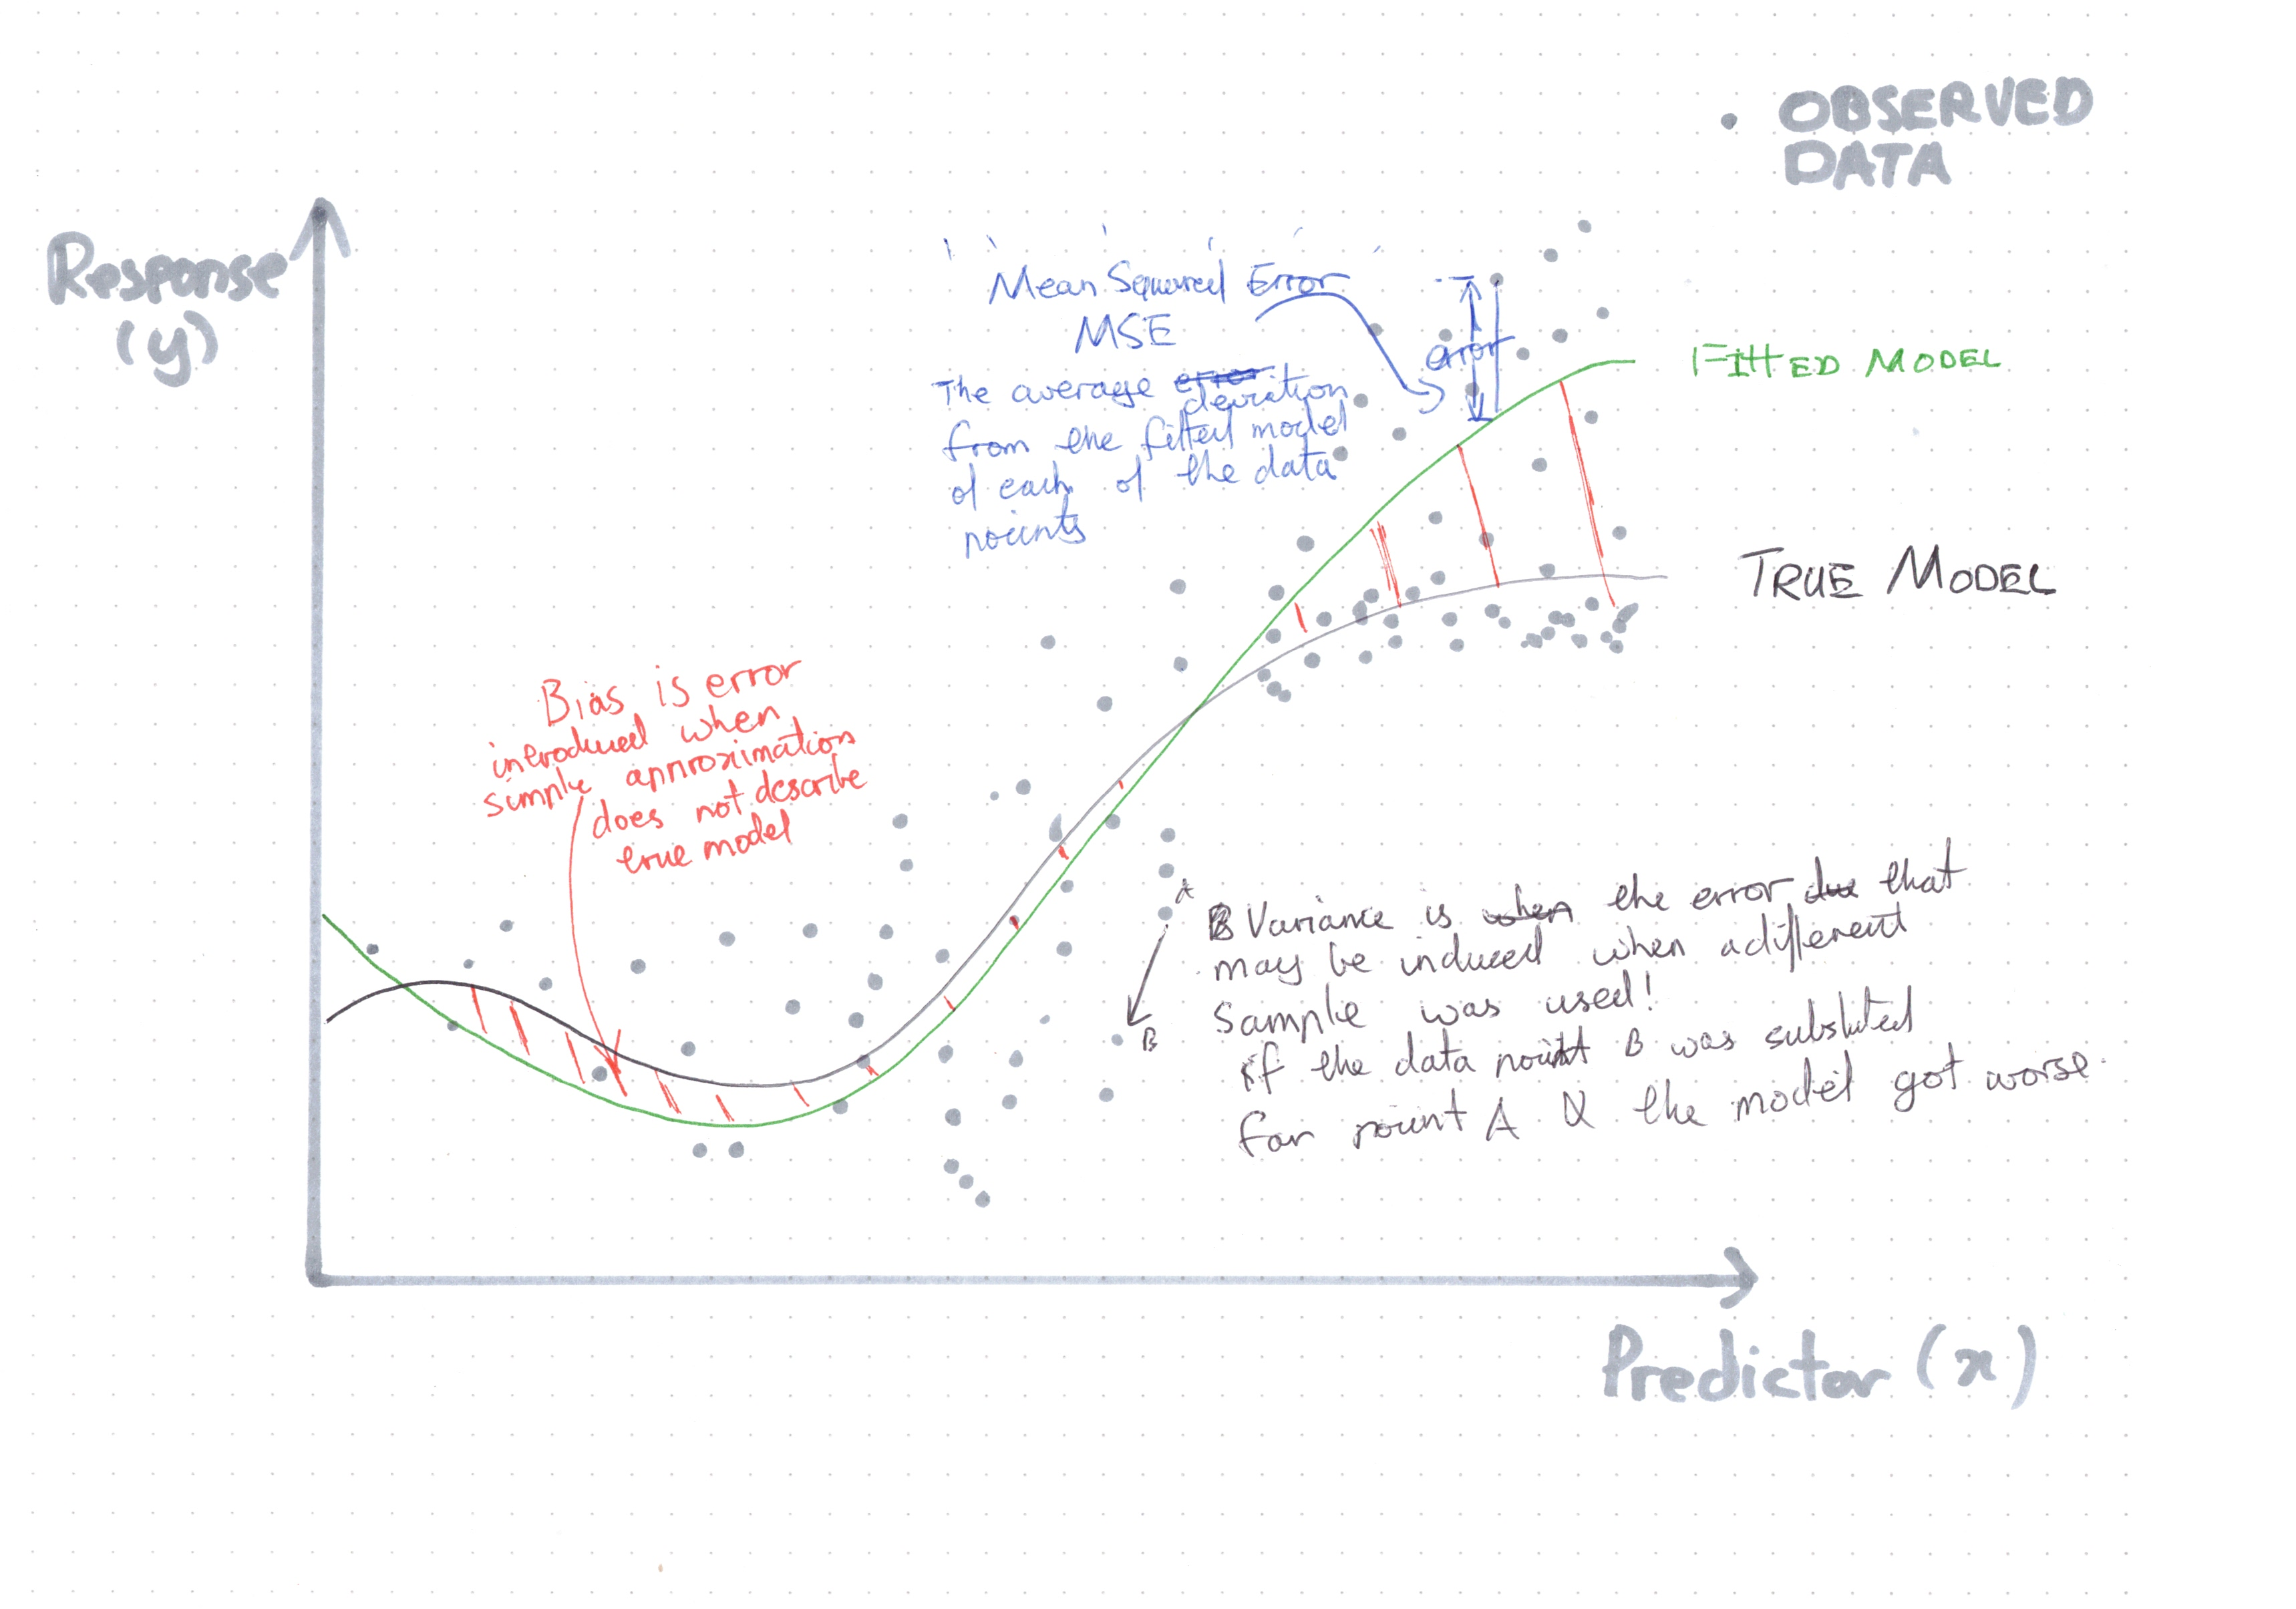 • OBSERVED
DATA
Response
(y)
Mean Squared Error
MSE
The average error deviation
from the fitted model
of each of the data
points
error
FITTED MODEL
TRUE MODEL
Bias is error
introduced when
simple approximation
does not describe
true model
A
B
B Variance is when the error due that
may be induced when a different
sample was used!
if the data point B was substuted
for point A & the model got worse.
Predictor (x)